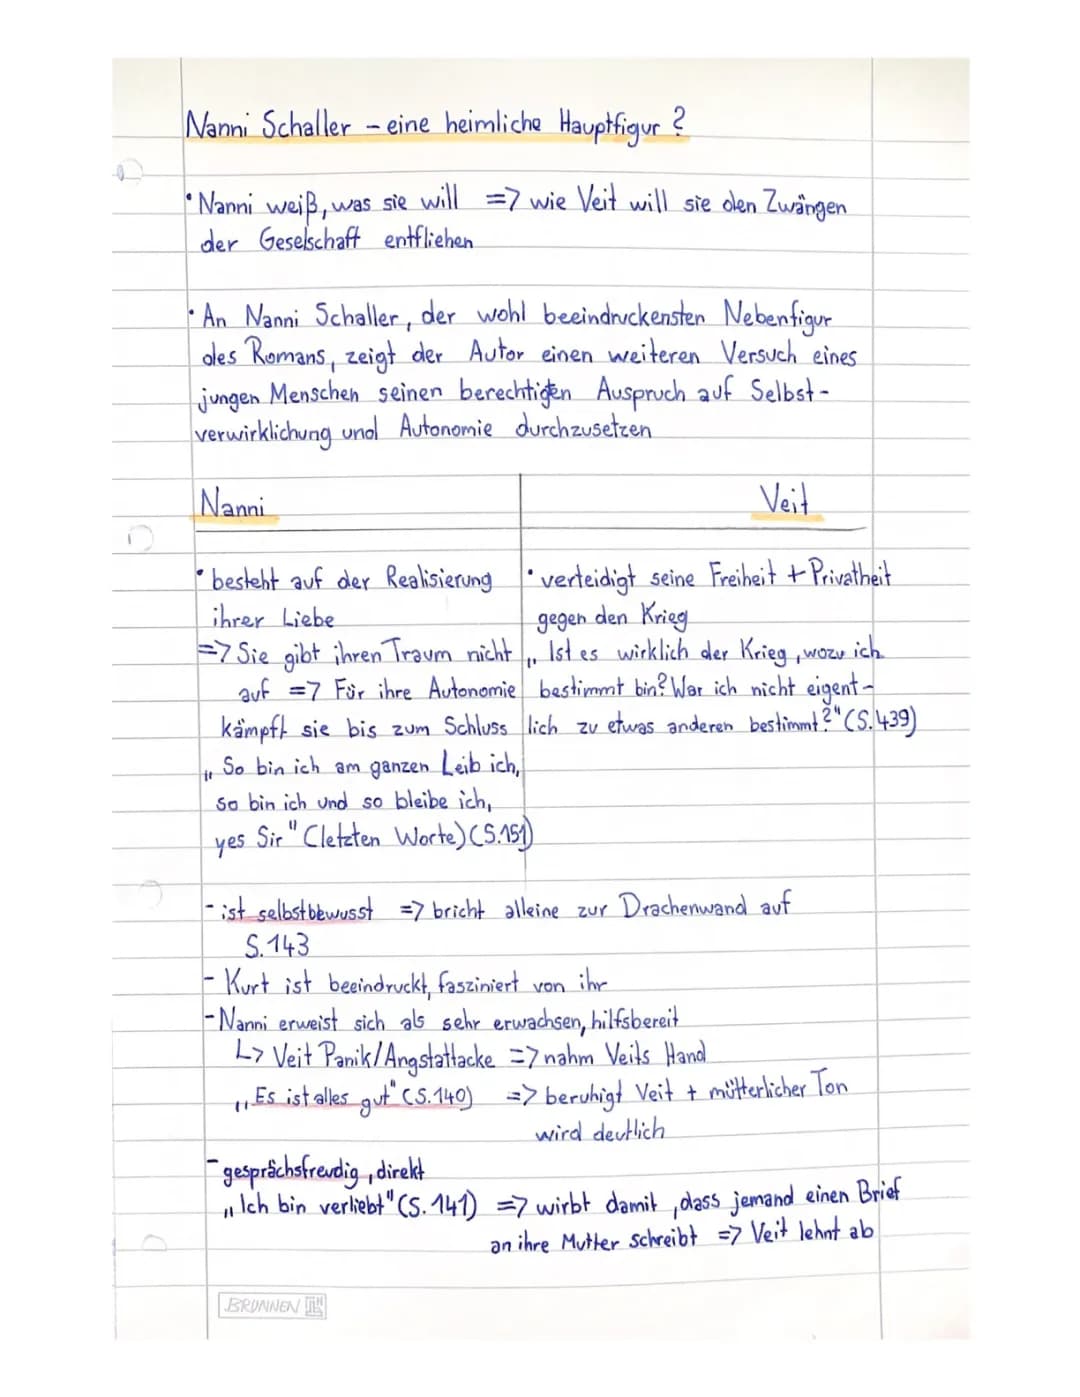 Nanni Schaller – eine heimliche Hauptfigur?
• Nanni weiß, was sie will => wie Veit will sie den Zwängen
der Geselschaft entfliehen
• An Nanni Schaller, der wohl beeindruckensten Nebenfigur
des Romans, zeigt der Autor einen weiteren Versuch eines
jungen Menschen seinen berechtigten Auspruch auf Selbst-
verwirklichung und Autonomie durchzusetzen
Nanni
• besteht auf der Realisierung
ihrer Liebe
=> Sie gibt ihren Traum nicht
auf => Für ihre Autonomie
kämpft sie bis zum Schluss
„So bin ich am ganzen Leib ich,
so bin ich und so bleibe ich,
yes Sir" (letzten Worte) (S.151)
Veit
• verteidigt seine Freiheit + Privatheit
gegen den Krieg
„Ist es wirklich der Krieg, wozu ich
bestimmt bin? War ich nicht eigent-
lich zu etwas anderen bestimmt?" (S.439)
- ist selbstbewusst => bricht alleine zur Drachenwand auf
S.143
- Kurt ist beeindruckt, fasziniert von ihr
- Nanni erweist sich als sehr erwachsen, hilfsbereit
↳ Veit Panik/Angstattacke => nahm Veits Hand
„Es ist alles gut" (S.140) => beruhigt Veit + mütterlicher Ton
wird deutlich
- gesprächsfreudig, direkt
„Ich bin verliebt" (S.141) => wirbt damit, dass jemand einen Brief
an ihre Mutter schreibt => Veit lehnt ab
BRUNNEN